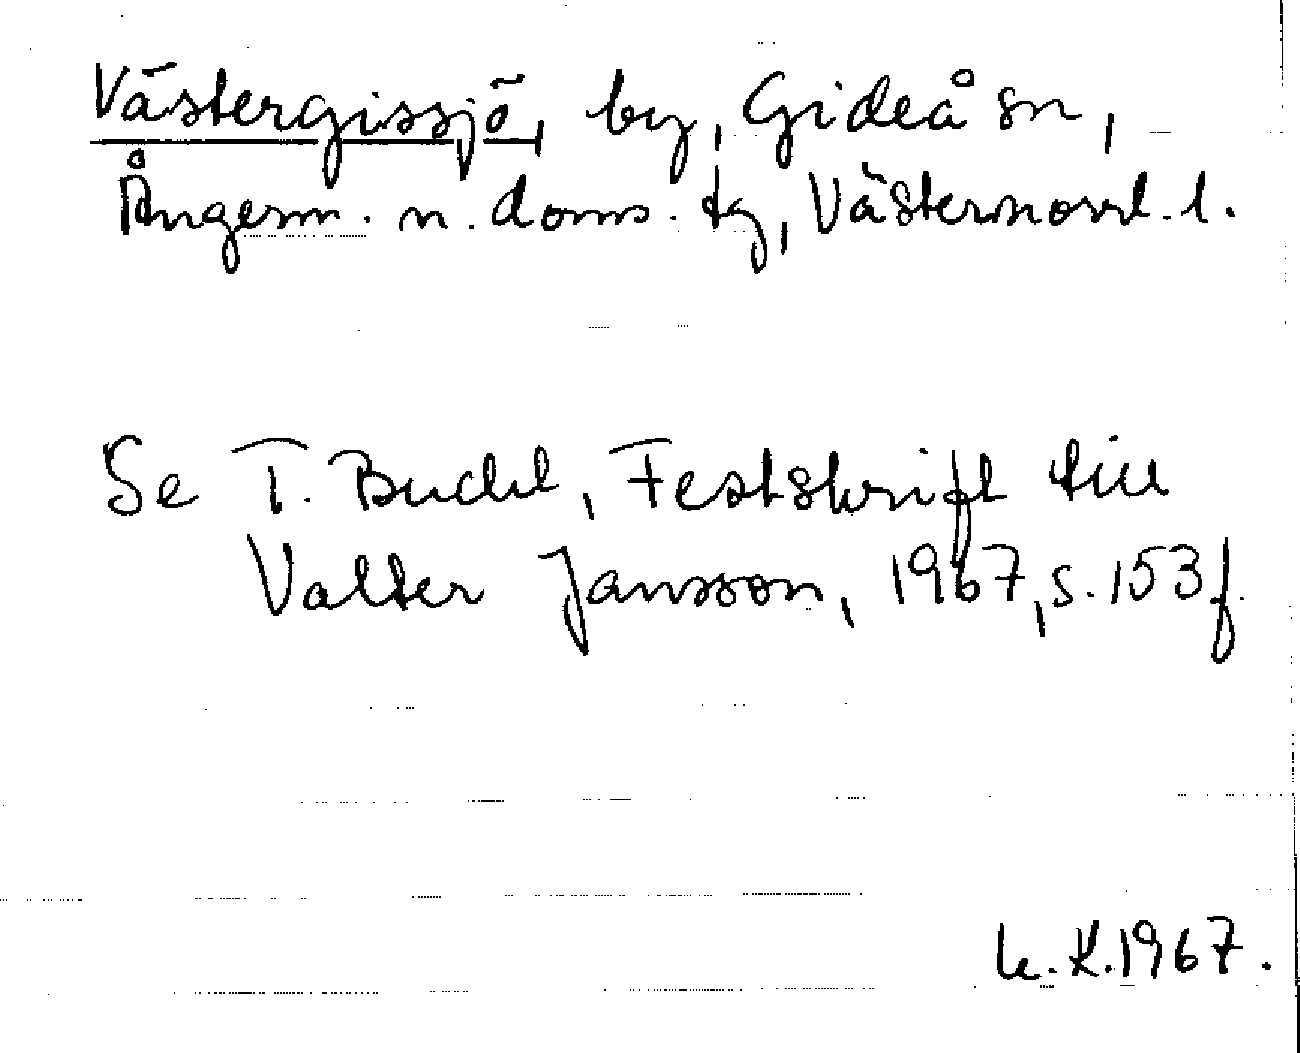 Västergissjö, by, Gideå sn,
Ångerm. n. doms. tg, Västernorrl. l.
Se T. Bucht, Festskrift till
Valter Jansson, 1967, s. 153 f.
K. 1967.